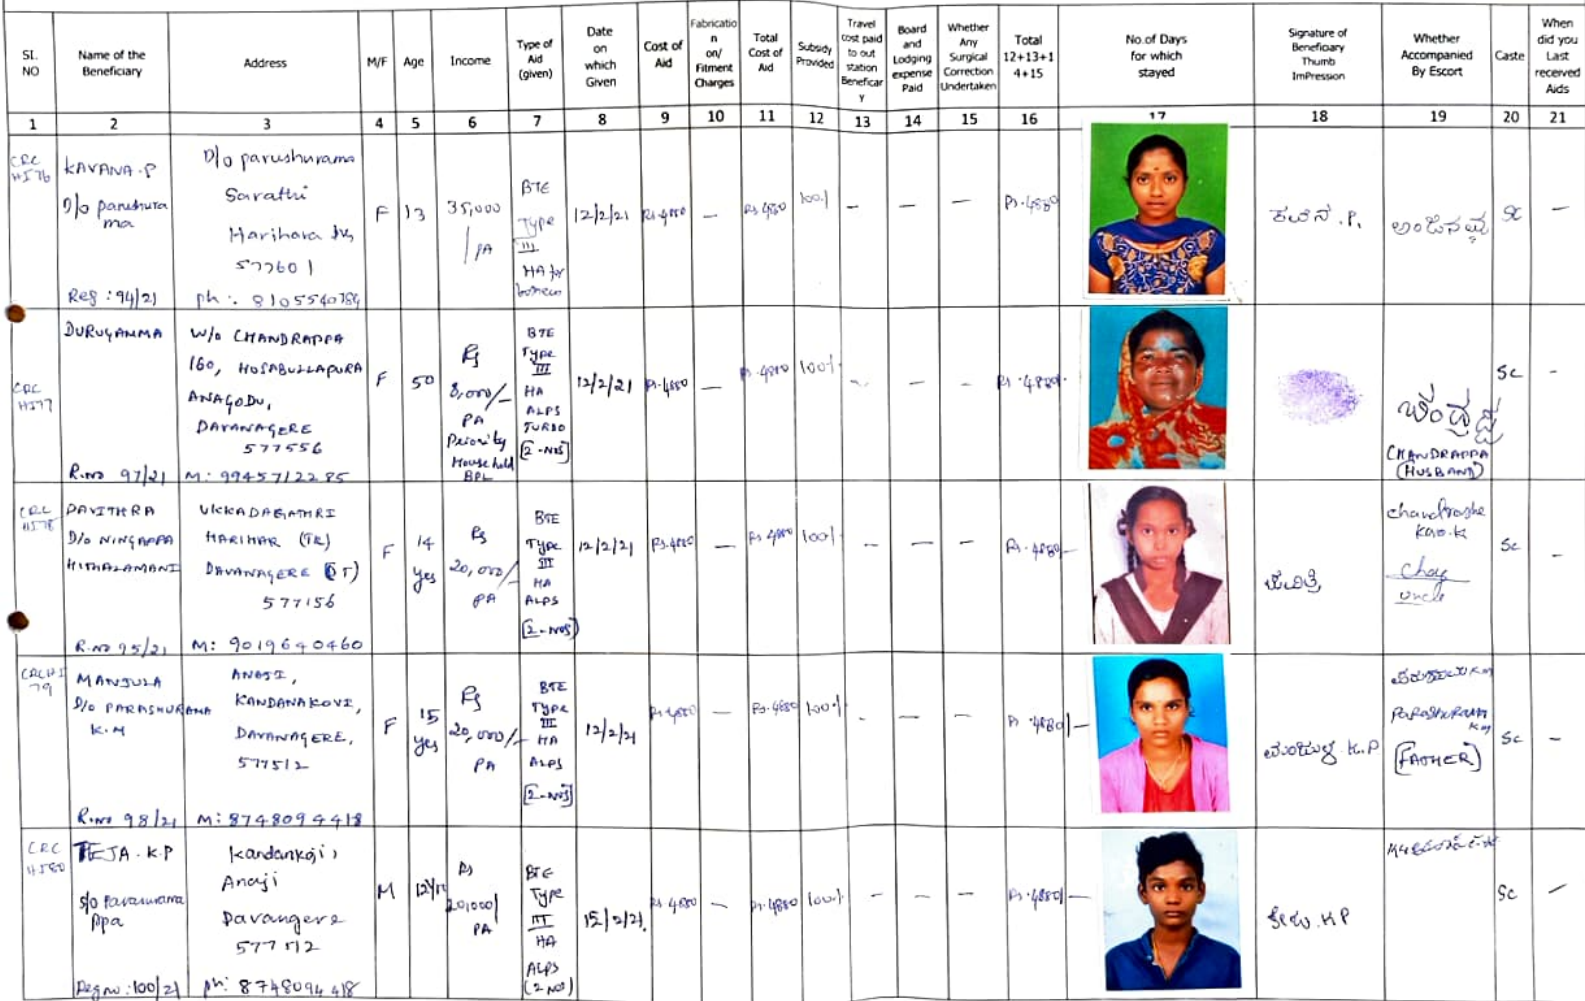 SI. NO
Name of the Beneficiary
Address
M/F
Age
Income
Type of Aid (given)
Date on which Given
Cost of Aid
Fabricatio n on/ Fitment Charges
Total Cost of Aid
Subsidy Provided
Travel cost paid to out station Beneficar y
Board and Lodging expense Paid
Whether Any Surgical Correction Undertaken
Total 12+13+1 4+15
No.of Days for which stayed
Signature of Beneficiary Thumb ImPression
Whether Accompanied By Escort
Caste
When did you Last received Aids
1 2 3 4 5 6 7 8 9 10 11 12 13 14 15 16 17 18 19 20 21
CRC HI76
KAVANA.P
D/o parushura ma
Reg: 94/21
D/o parushurama
Sarathi
Harihara
577601
ph: 8105540784
F
13
35,000 /PA
BTE Type III HA for
12/2/21
Rs.4880
—
Rs 4880
100%
—
—
—
Rs.4880
ಕವನ.P.
SC
—
CRC HI77
DURUGAMMA
R.no 97/21
W/o CHANDRAPPA
160, HOSABULLAPURA
ANAGODU,
DAVANAGERE
577556
M: 9945712285
F
50
Rs 8,000/- PA
Priority Household BPL
BTE Type III HA ALPS TURBO [2-NOS]
12/2/21
Rs.4880
—
Rs.4880
100%
—
—
—
Rs.4880/-
ಚಂದ್ರಪ್ಪ
CHANDRAPPA (HUSBAND)
SC
-
CRC HI78
PAVITHRA
D/o NINGAPPA
HITHALAMANI
R.no 95/21
UKKADAGATHRI
HARIHAR (TK)
DAVANAGERE (DT)
577156
M: 9019640460
F
14 yes
Rs 20,000/- PA
BTE Type III HA ALPS [2-NOS]
12/2/21
Rs.4880
—
Rs 4880
100%
—
—
—
Rs.4880/-
ಪವಿತ್ರ
chandrashe kar.K
uncle
SC
-
CRCHI 79
MANJULA
D/o PARASHURAMA K.M
R.no 98/21
ANAJI,
KANDANAKOVI,
DAVANAGERE,
577512
M: 8748094418
F
15 yes
Rs 20,000/- PA
BTE Type III HA ALPS [2-NOS]
12/2/21
Rs.4880
—
Rs.4880
100%
-
—
—
Rs 4880/-
ಮಂಜುಳ.K.P
PARASHURAM KM
[FATHER]
SC
-
CRC HI80
TEJA.K.P
s/o Parasurama ppa
Reg no: 100/21
Kandankoji,
Anaji
Davangere
577512
ph: 8748094418
M
12
Rs 20,000/ PA
BTE Type III HA ALPS (2 NOS)
15/2/21
Rs 4880
—
Rs.4880
100%
-
-
—
Rs.4880/-
SC
—